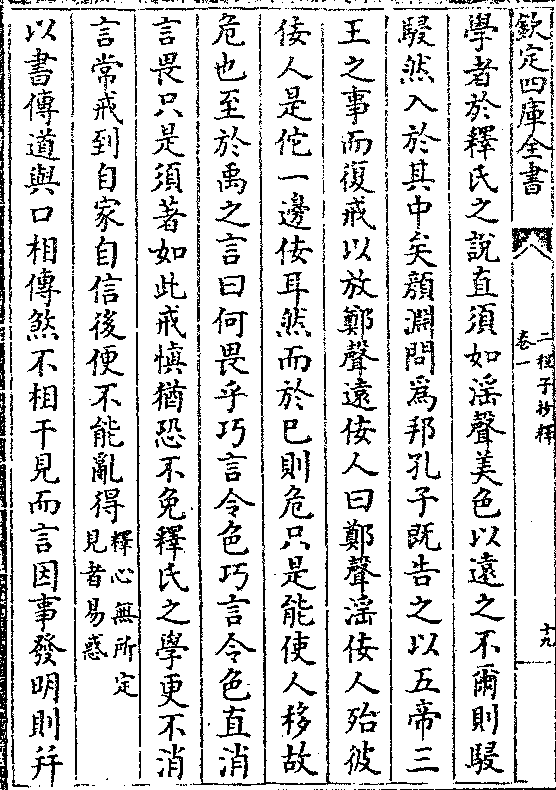 欽定四庫全書
二程子抄釋
卷一
十九
學者於釋氏之說直須如淫聲美色以遠之不爾則駸
駸然入於其中矣顔淵問爲邦孔子既告之以五帝三
王之事而復戒以放鄭聲遠佞人曰鄭聲淫佞人殆彼
佞人是佗一邊佞耳然而於已則危只是能使人移故
危也至於禹之言曰何畏乎巧言令色巧言令色直消
言畏只是須著如此戒慎猶恐不免釋氏之學更不消
言常戒到自家自信後便不能亂得釋心無所定
見者易惑
以書傳道與口相傳煞不相干見而言因事發明則幷